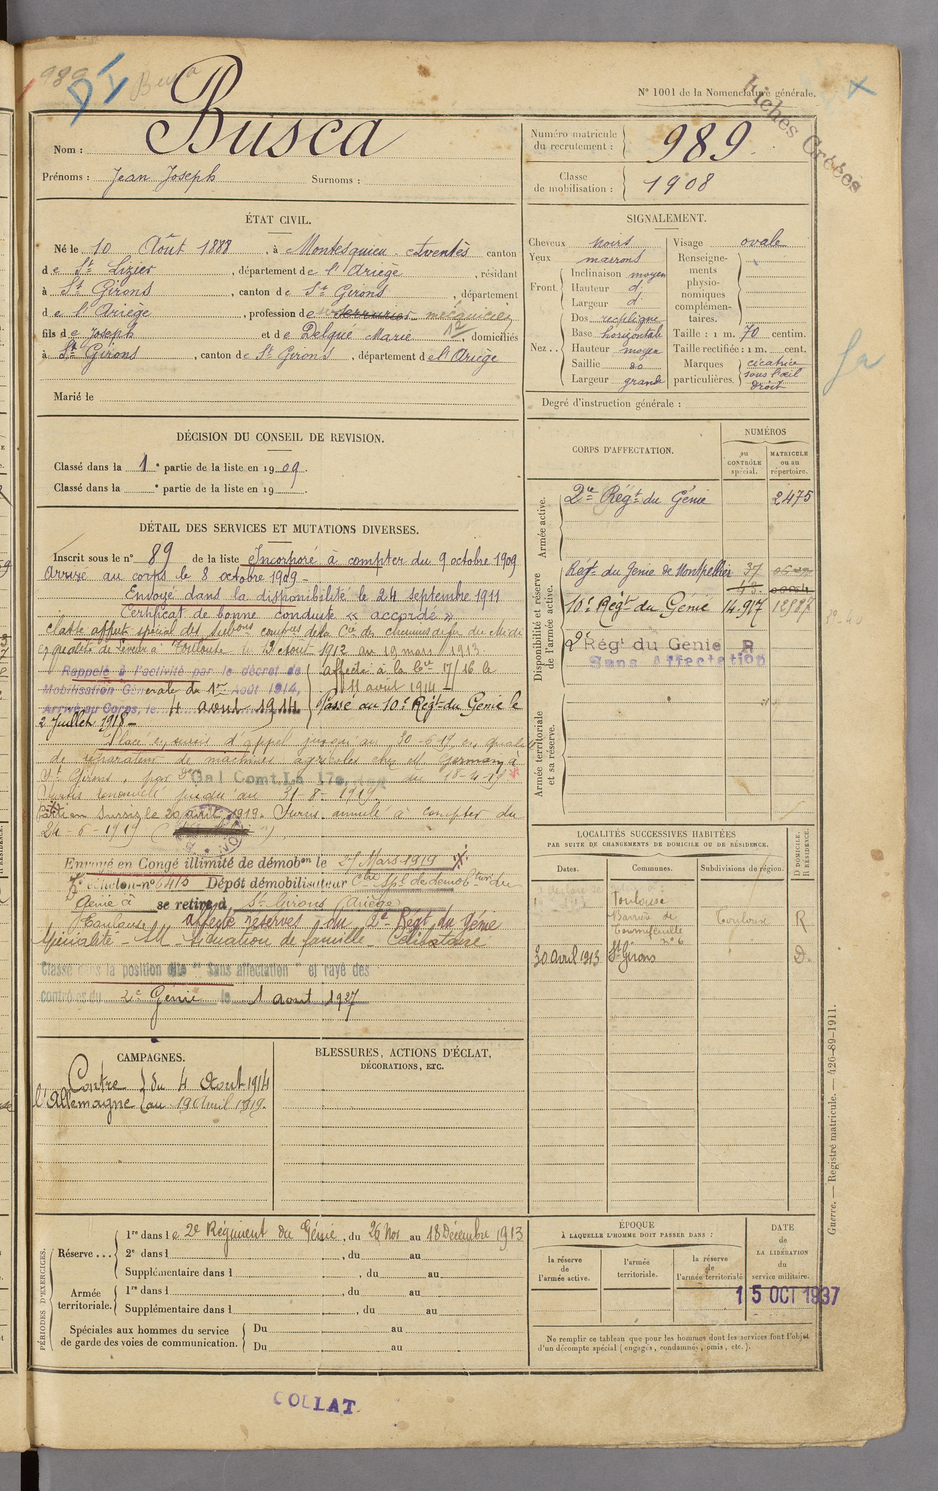 989
Busca
N° 1001 de la Nomenclature générale.
Fiches Créées
Nom : Busca
Prénoms : Jean Joseph Surnoms :
Numéro matricule du recrutement : 989
Classe de mobilisation : 1908
ÉTAT CIVIL.
Né le 10 Août 1888, à Montesquieu Avantès canton
de St Lizier, département de l'Ariège, résidant
à St Girons, canton de St Girons, département
de l'Ariège, profession de serrurier mécanicien
fils de Joseph et de Delqué Marie, domiciliés
à St Girons, canton de St Girons, département de l'Ariège
Marié le
SIGNALEMENT.
Cheveux noirs
Yeux marrons
Front. Inclinaison moyen
Hauteur d°
Largeur d°
Nez.. Dos rectiligne
Base horizontale
Hauteur moyen
Saillie do
Largeur grande
Visage ovale
Renseignements physionomiques complémentaires.
Taille : 1 m. 70 centim.
Taille rectifiée : 1 m. cent.
Marques particulières. cicatrice sous l'œil droit
Degré d'instruction générale :
DÉCISION DU CONSEIL DE REVISION.
Classé dans la 1e partie de la liste en 1909.
Classé dans la e partie de la liste en 19
CORPS D'AFFECTATION.
NUMÉROS
au CONTRÔLE spécial.
MATRICULE ou au répertoire.
Armée active.
2e Régt du Génie 2475
Disponibilité et réserve de l'armée active.
Régt du Génie de Montpellier 37
10e Régt du Génie 14.927 12927
2e Régt du Génie R
Sans Affectation
Armée territoriale et sa réserve.
DÉTAIL DES SERVICES ET MUTATIONS DIVERSES.
Inscrit sous le n° 89 de la liste Incorporé à compter du 9 octobre 1909
Arrivé au corps le 8 octobre 1909 -
Envoyé dans la disponibilité le 24 septembre 1911
Certificat de bonne conduite « accordé »
Classé affecté spécial des subdons comptres de la Cie des chemins de fer du midi
Toulouse du 12 août 1912 au 19 mars 1913
Rappelé à l'activité par le décret de
Mobilisation Générale du 1er Août 1914,
Arrivé au Corps, le 4 août 1914
affecté à la Cie 17/16 le
11 avril 1914 -
Passé au 10e Régt du Génie le
2 Juillet 1918 -
Placé en sursis d'appel jusqu'au 30-6-19 en qualité
de réparateur de machines agricoles chez Mr Germany à
St Girons, par Don Gal Comt La 17e du 18-4-19
Sursis renouvelé jusqu'au 31-8-1919
Parti en Sursis le 20 avril 1919. Sursis annulé à compter du
24-6-1919
Envoyé en Congé illimité de démobon le 27 Mars 1919
échelon n° 6415 Dépôt démobilisateur Ctre Spl de démobtion du
Génie à Toulouse se retire à St Girons (Ariège)
affecté réserves du 2e Régt du Génie
Spécialité - Situation de famille - Célibataire
Classé dans la position dite "Sans affectation" et rayé des
contrôles du 2e Génie le 1 août 1927
LOCALITÉS SUCCESSIVES HABITÉES
PAR SUITE DE CHANGEMENTS DE DOMICILE OU DE RÉSIDENCE.
Dates. Communes. Subdivisions de région. D DOMICILE. R RÉSIDENCE.
Toulouse
Barrière de Tournefeuille n° 6 Toulouse R
30 Avril 1913 St Girons D.
CAMPAGNES.
Contre l'Allemagne du 4 Août 1914
au 19 Avril 1919.
BLESSURES, ACTIONS D'ÉCLAT,
DÉCORATIONS, ETC.
PÉRIODES D'EXERCICES.
Réserve... 1re dans le 2e Régiment du Génie, du 26 Nov au 18 Décembre 1913
2e dans l , du au
Supplémentaire dans l , du au
Armée territoriale. 1re dans l , du au
Supplémentaire dans l , du au
Spéciales aux hommes du service de garde des voies de communication. Du au
Du au
ÉPOQUE
À LAQUELLE L'HOMME DOIT PASSER DANS :
la réserve de l'armée active.
l'armée territoriale.
la réserve de l'armée territoriale
DATE DE LA LIBÉRATION du service militaire.
15 OCT 1937
Ne remplir ce tableau que pour les hommes dont les services font l'objet
d'un décompte spécial (engagés, condamnés, omis, etc.).
Guerre. — Registre matricule. — 426-89-1911.
COLLAT